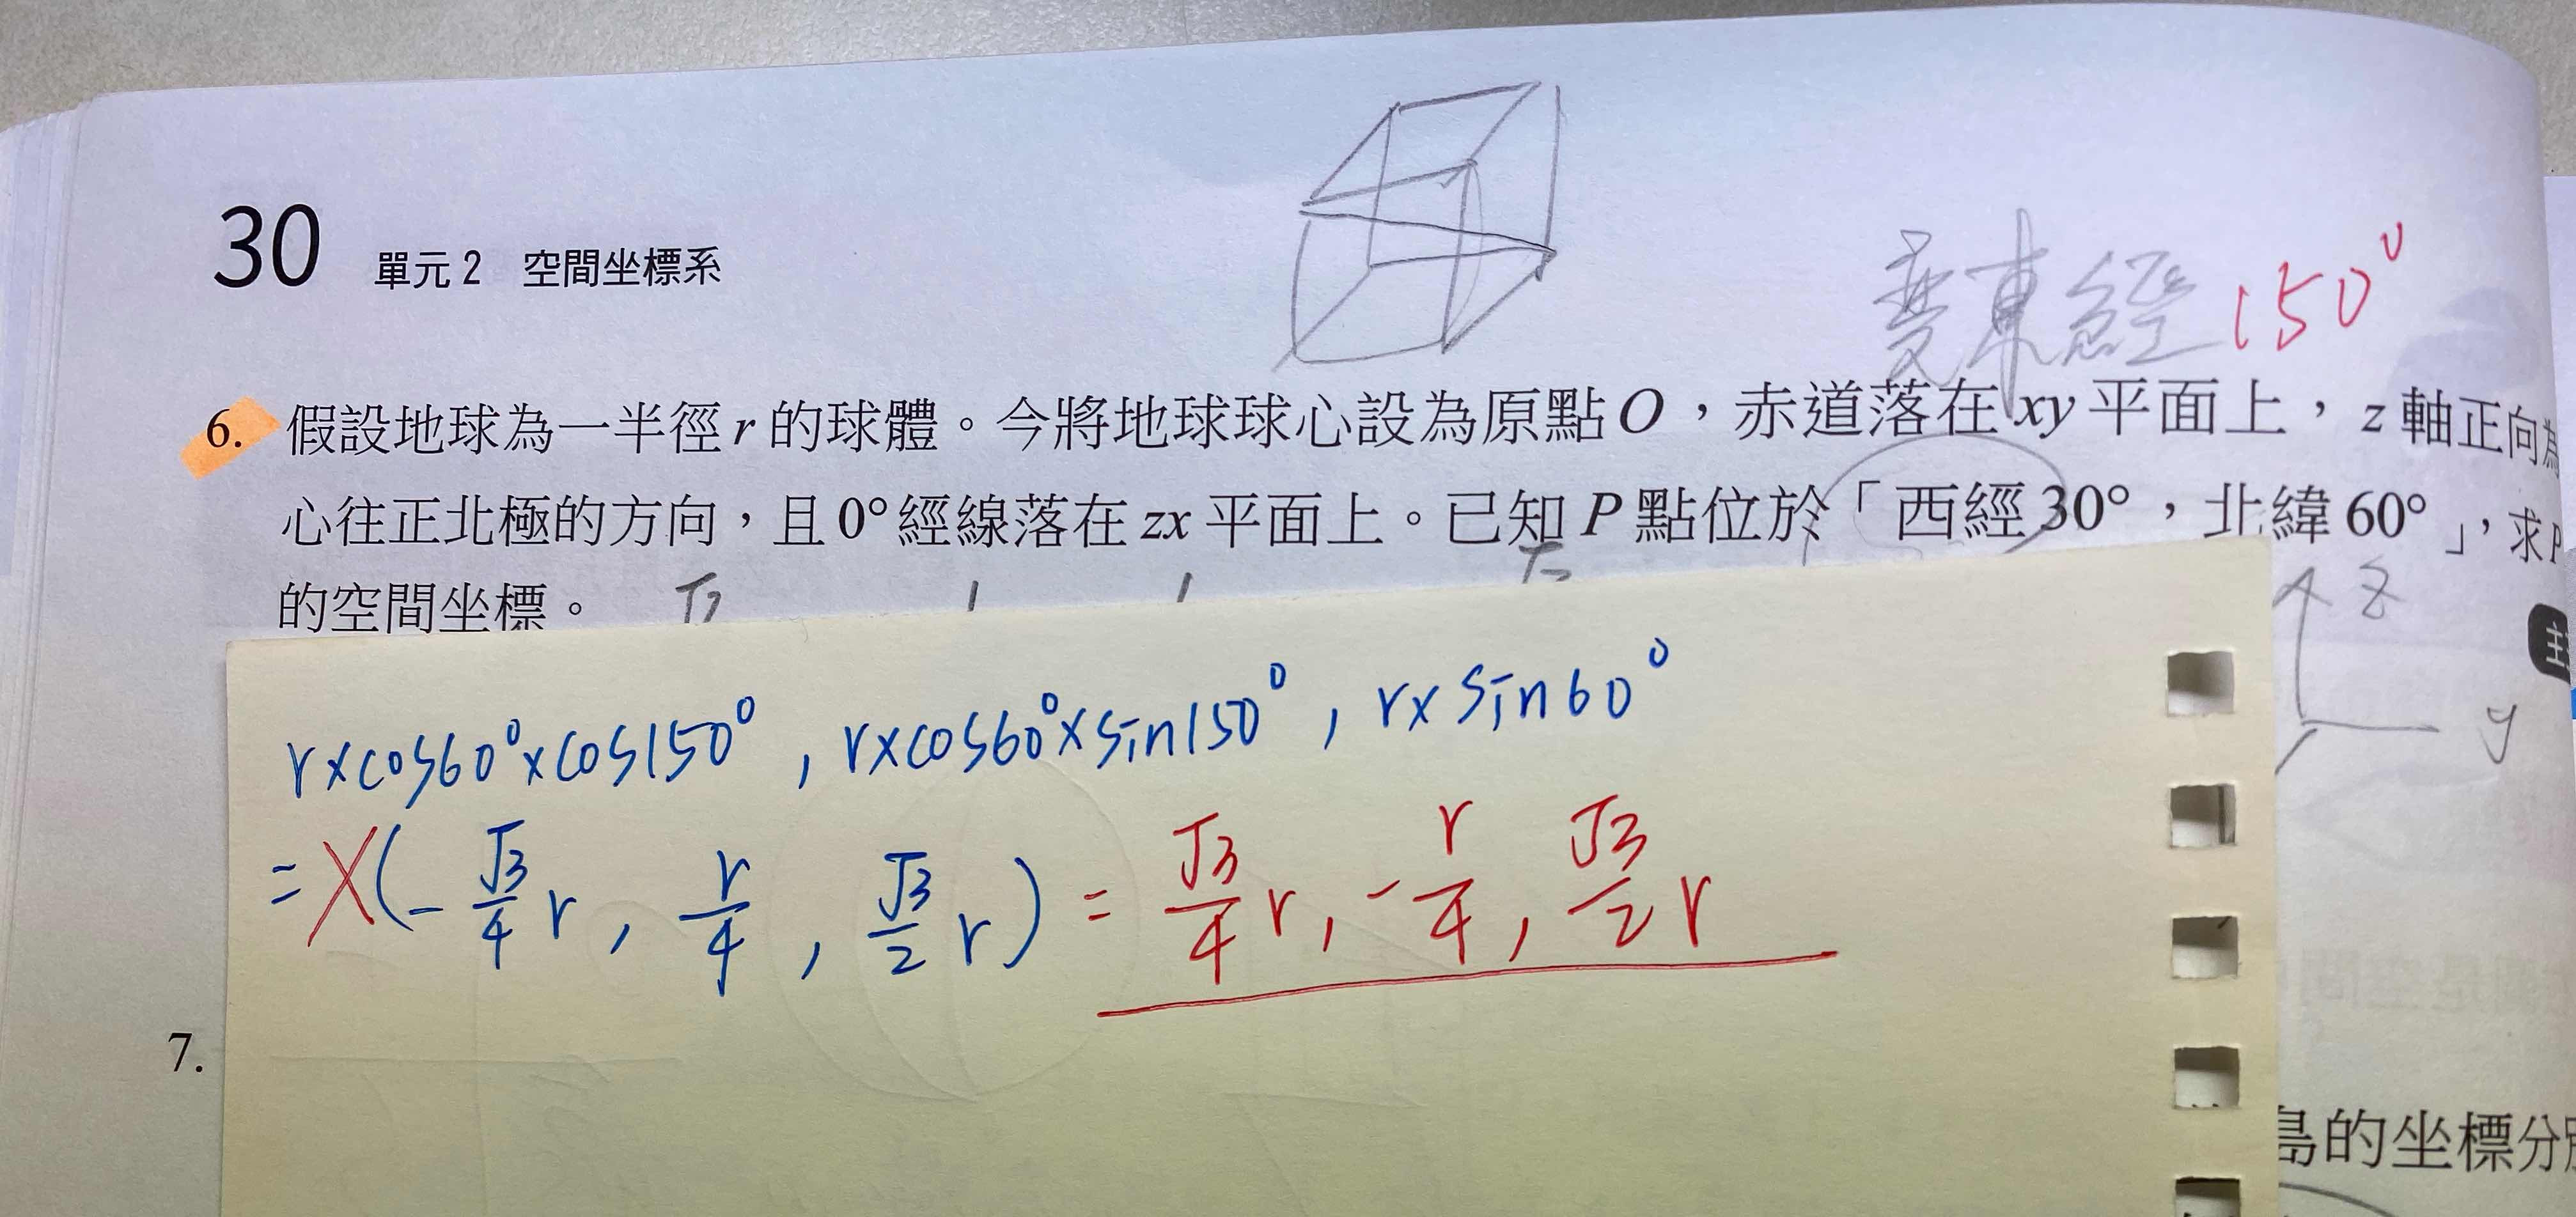 30 單元2 空間坐標系
變東經150°
6. 假設地球為一半徑r的球體。今將地球球心設為原點O，赤道落在xy平面上，z軸正向為
心往正北極的方向，且0°經線落在zx平面上。已知P點位於「西經30°，北緯60°」，求P
的空間坐標。
z
y
r×cos60°×cos150°, r×cos60°×sin150°, r×sin60°
= X(-√3/4 r, r/4, √3/2 r) = √3/4 r, -r/4, √3/2 r
7.
島的坐標分